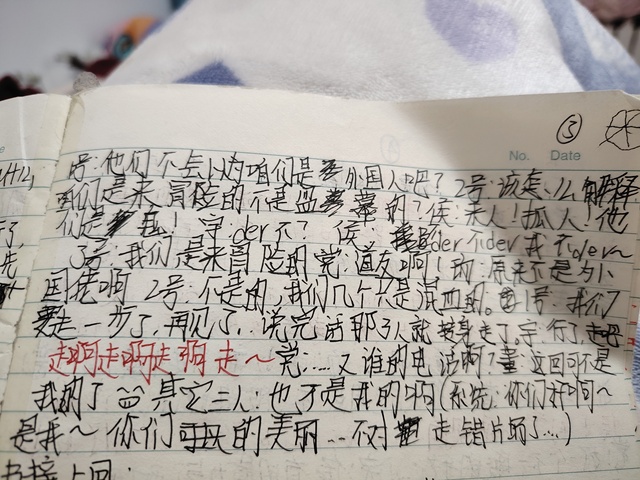 ③
No. Date
号:他们不会以为咱们是外国人吧?2号:该怎么解释
咱们是来冒险的不是盗墓的?侯:来人!孤人!他
们是私!宇:der不?侯:der不der我不der~
3号:我们是来冒险的 党:道友啊!的:原来不是外
国佬啊 2号:不是的,我们几个只是混血的。1号:我们
要走一步了,再见了,说完话那3人就转身走了。宇:行了,
走啊走啊走啊走~党:....又谁的电话啊?董:这回可不是
我的了 其它三人:也不是我的啊(系统:你们好啊~
是我~你们的美丽...不对 走错片场了...)
书接上回: